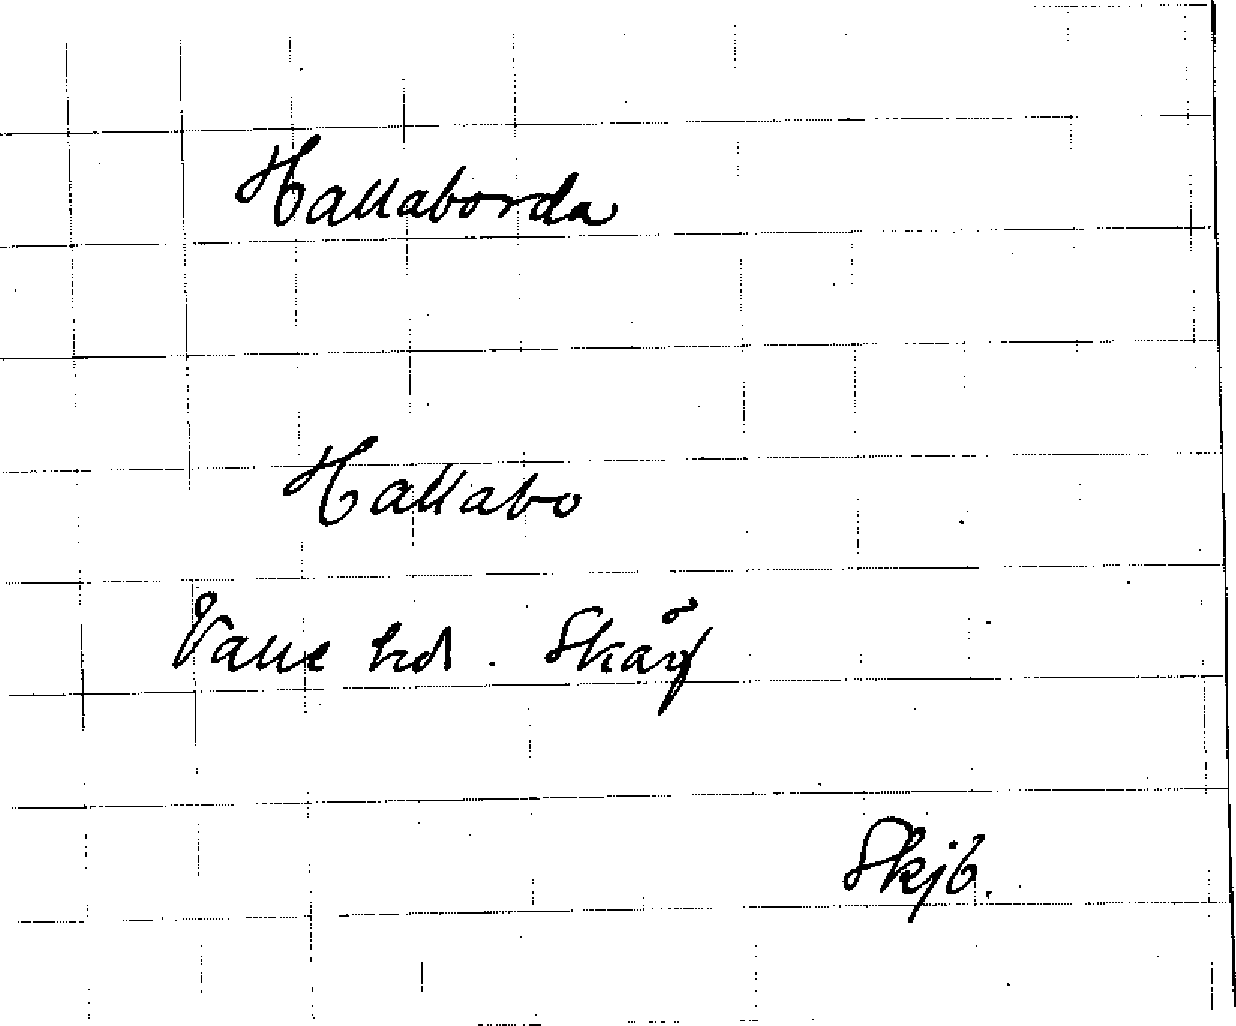 Hallaborda
Hallabo
Valle hd. Skärf
Skjb.